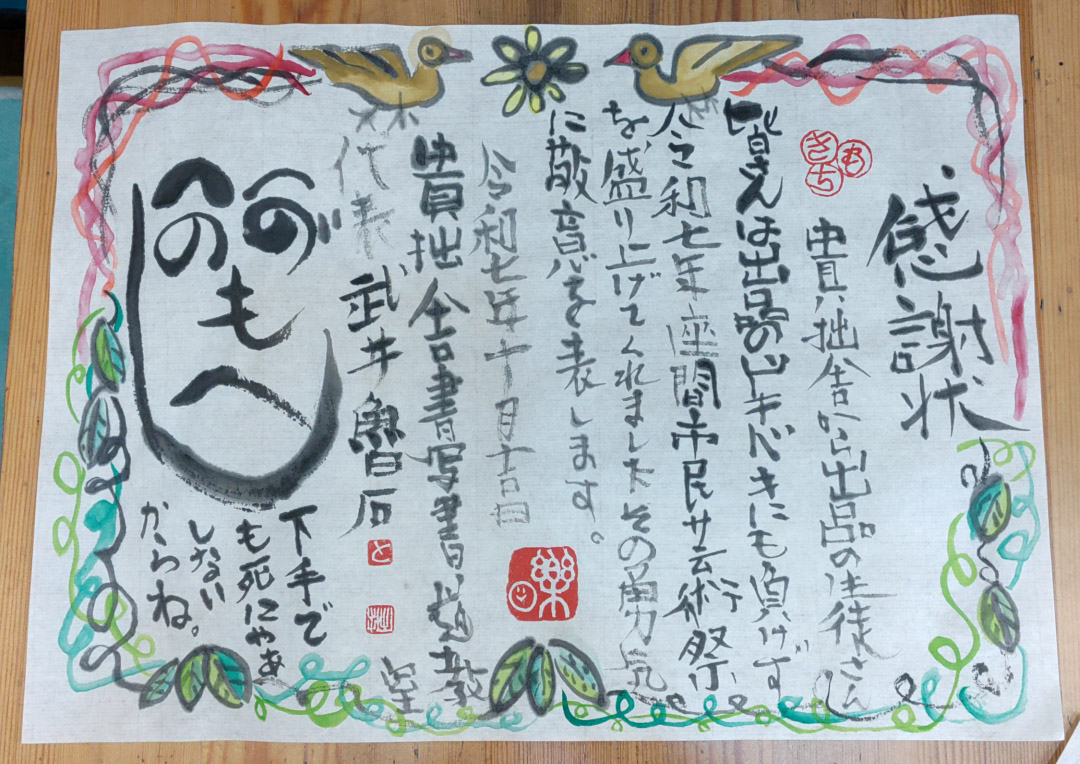 感謝状
もきち
貴拙舎から出品の生徒さん
皆さんは出品のドキドキにも負けず
令和七年座間市民サ芸術祭
を盛り上げてくれましたその勇気
に敬意を表します。
令和七年十月十三日
樂
貴拙舎書写書道教室
代表 武井魯石
と
へのへのもへじ
下手で
も死にゃあ
しない
からね。